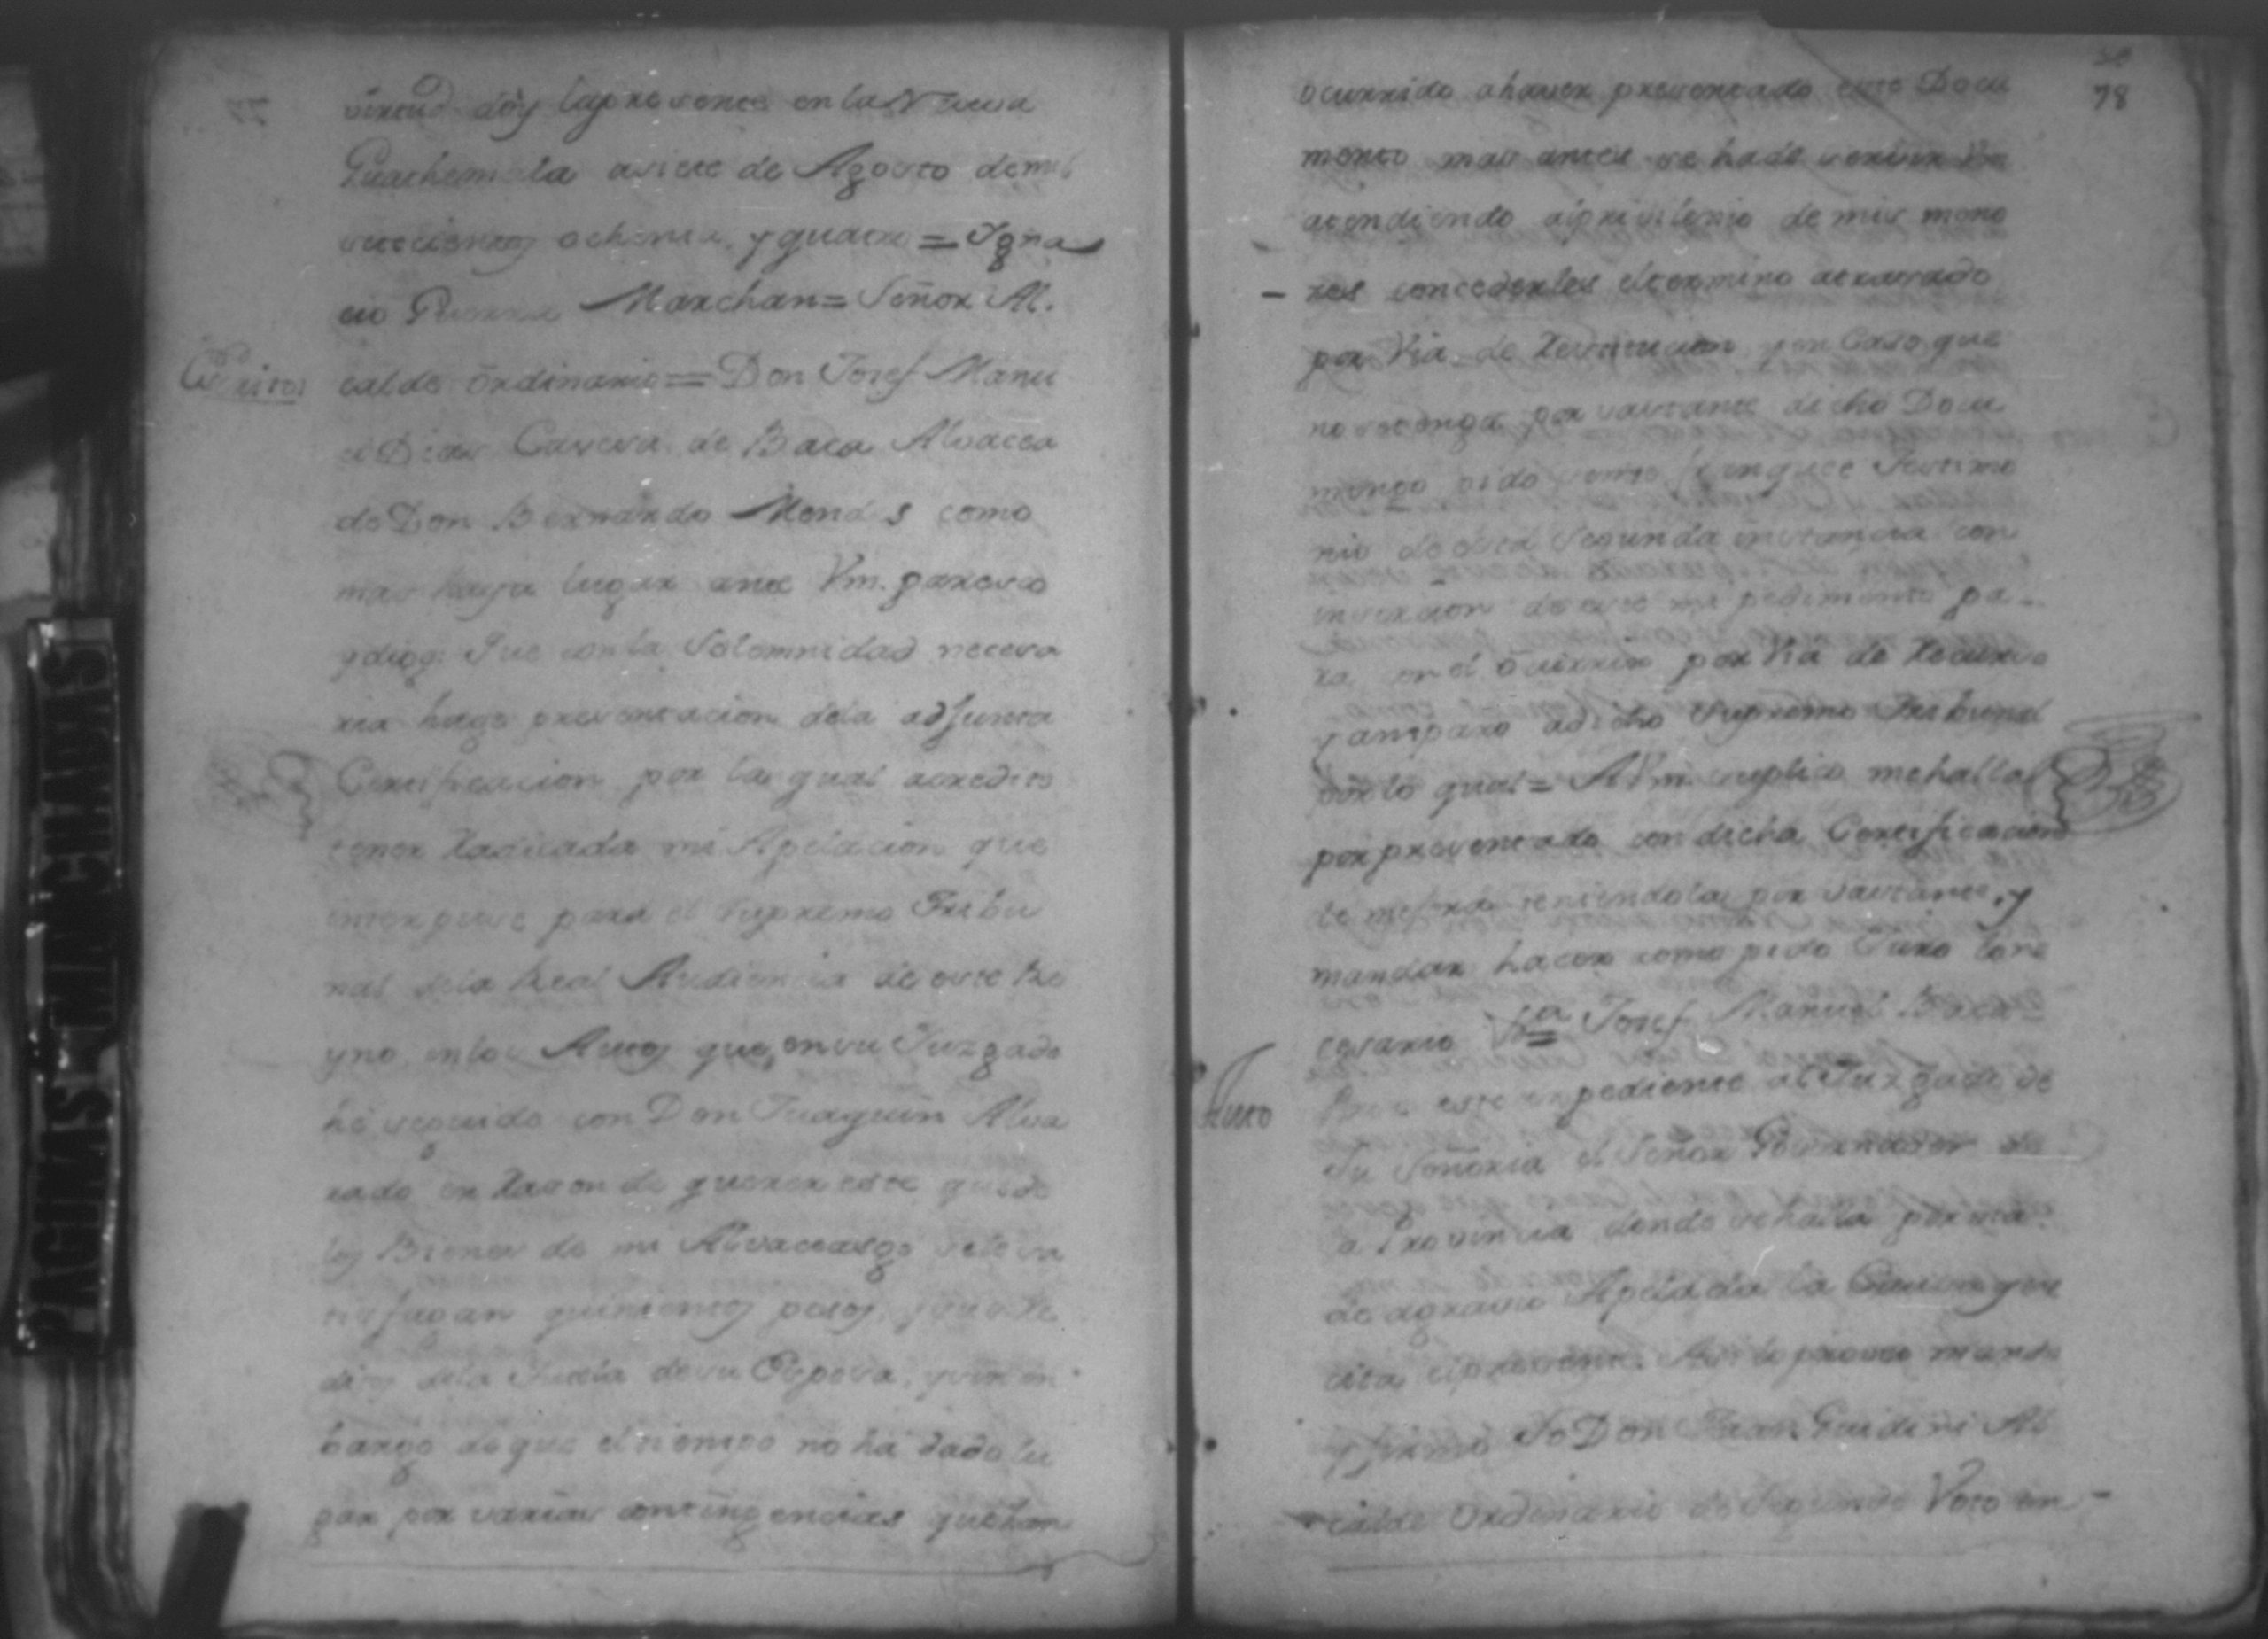 virtud doy la presente en la Nueva
Guathemala a siete de Agosto de mil
setecientos ochenta, y quatro = Ygna
cio Guerra Marchan = Señor Al.
Escrito
calde ordinario = Don Josef Manu
el Dias Caveza de Baca Alvacea
de Don Bernardo Mendes como
mas haya lugar ante Vm. paresco
y digo: Que con la Solemnidad necesa
ria hago presentacion dela adjunta
Certificacion por la qual acredito
tener Radicada mi Apelacion que
interpuse para el Supremo Tribu
nal dela Real Audiencia de este Re
yno, en los Autos que, en su Juzgado
he seguido con Don Juaquin Alva
rado en Razon de querer este que de
los Bienes de mi Alvaceasgo se le sa
tisfagan quinientos pesos,
dela Tutela de su Esposa, y sin em
bargo de que el tiempo no ha dado lu
gar por varias contingencias que han
78
ocurrido a haver presentado este Docu
mento mas antes se ha de servir Vm
atendiendo al privilegio de mis meno
res concederles el termino atrasado
por Via de Restitucion y en Caso que
no se tenga por vastante dicho Docu
mento pido se me franquee Testimo
nio de esta Segunda instancia con
insercion de este mi pedimento pa
ra en el ocurrir por Via de Recurso
y amparo a dicho Supremo Tribunal
por lo qual = A Vm. suplico me halla
por presentado con dicha Certificacion
de mejora teniendola por vastante, y
mandar hacer como pido Juro lo ne
cesario Va Josef Manuel Baca =
Auto
este expediente al Juzgado de
Su Señoria el Señor Governador de
la Provincia donde se halla por via
de agravio Apelada la Causa y en
esta el presente. Asi lo proveo mando
y firmo Yo Don Juan Al
calde Ordinario de Segundo Voto en
PAGINAS MANCHADAS